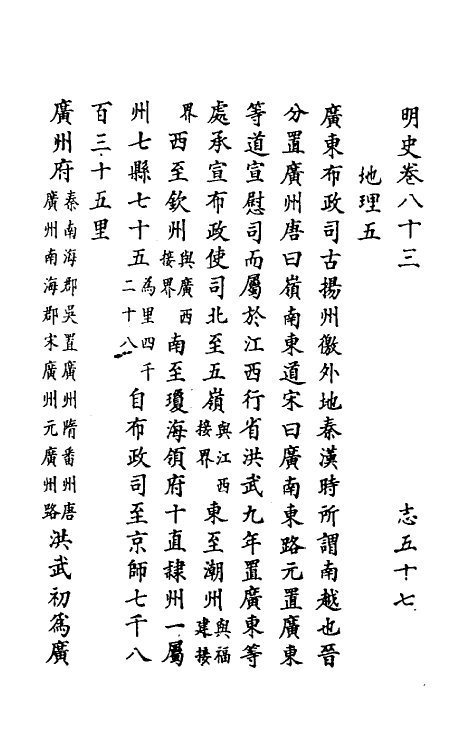 明史卷八十三　志五十七
地理五
廣東布政司古揚州徼外地秦漢時所謂南越也晉
分置廣州唐曰嶺南東道宋曰廣南東路元置廣東
等道宣慰司而屬於江西行省洪武九年置廣東等
處承宣布政使司北至五嶺與江西接界東至潮州與福建接
界西至欽州與廣西接界南至瓊海領府十直隸州一屬
州七縣七十五為里四千二十八自布政司至京師七千八
百三十五里
廣州府秦南海郡吳置廣州隋番州唐廣州南海郡宋廣州元廣州路洪武初爲廣